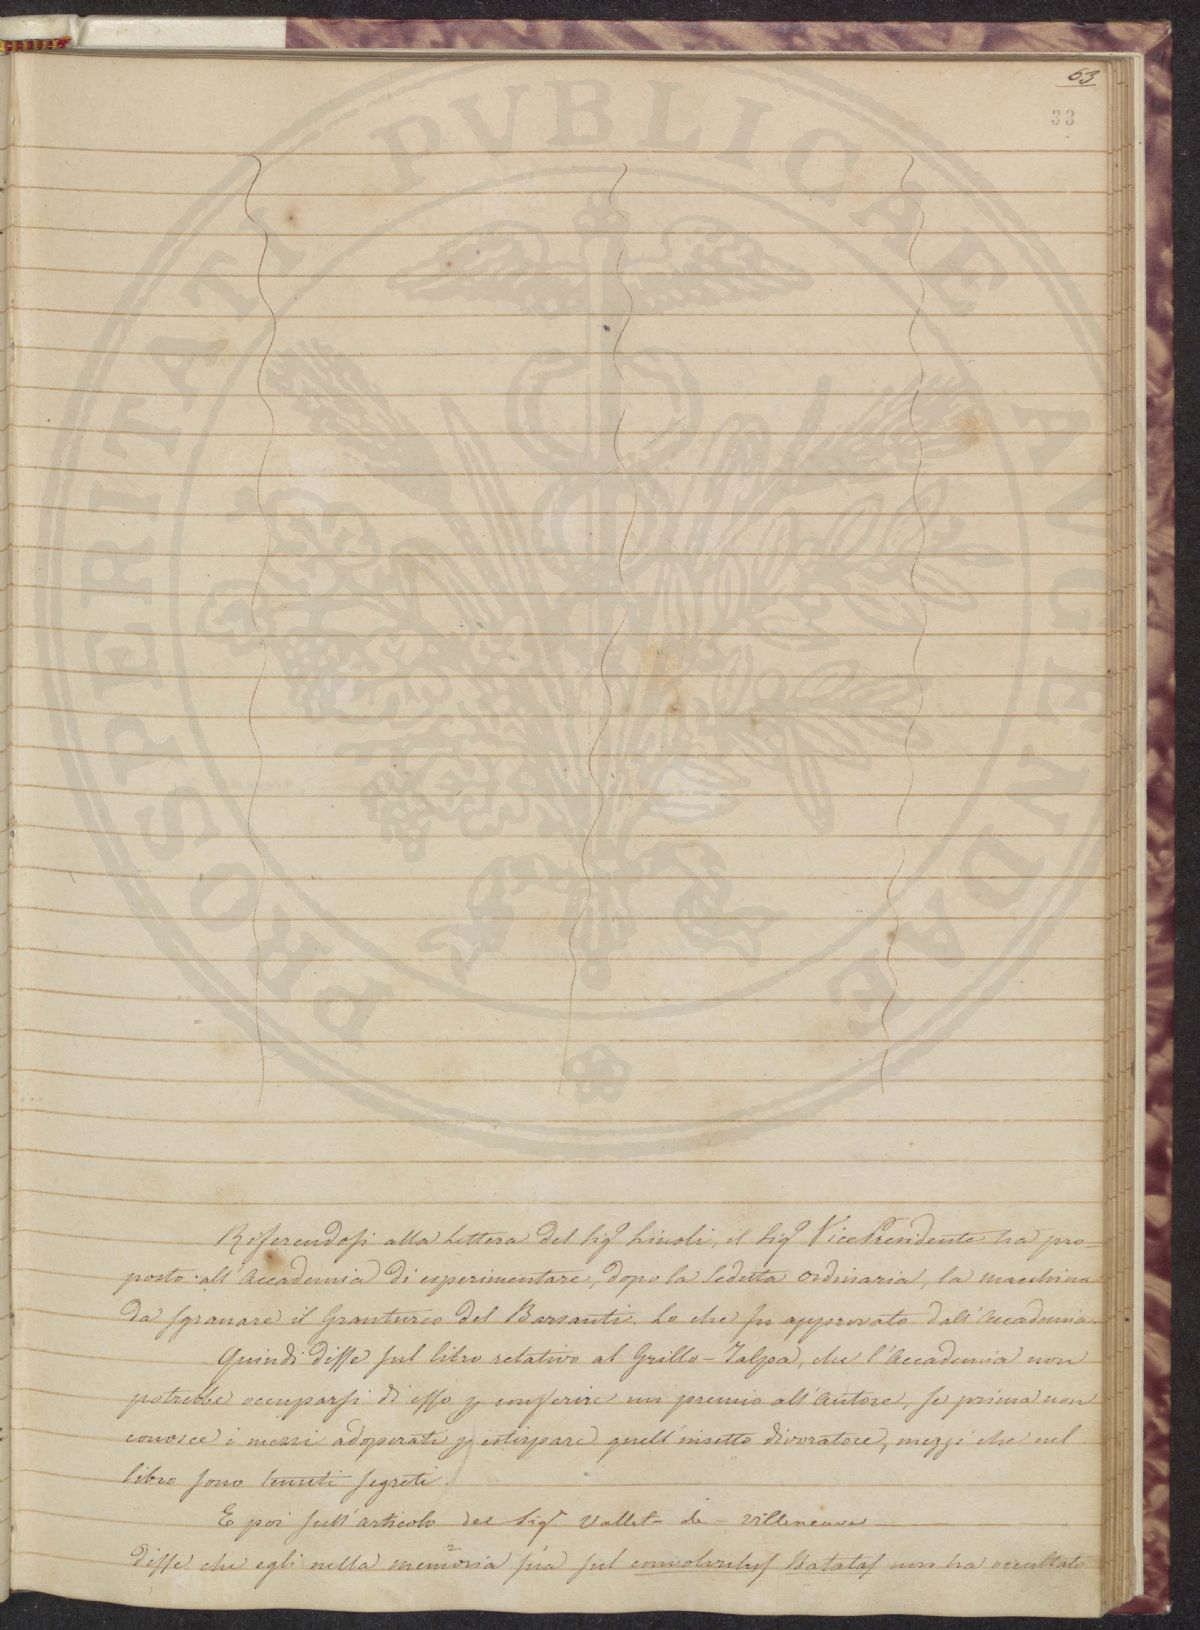 63
33
Riferendosi alla lettera del Sigr Linoli, il Sigr Vice Presidente ha pro-
posto all'Accademia di esperimentare, dopo la seduta ordinaria, la macchina
da sgranare il granturco del Barsanti. Lo che fu approvato dall'Accademia.
Quindi disse sul libro relativo al Grillo-Talpa, che l'Accademia non
potrebbe occuparsi di esso p conferire un premio all'Autore, se prima non
conosce i mezzi adoperati p estirpare quell'insetto divoratore, mezzi che nel
libro sono tenuti segreti.
E poi sull'articolo del Sigr Vallet-de-Villeneuve
disse che egli nella memoria sua sul convolvulus Batatas non ha occultato
PROSPERITATI PVBLICAE AVGENDAE